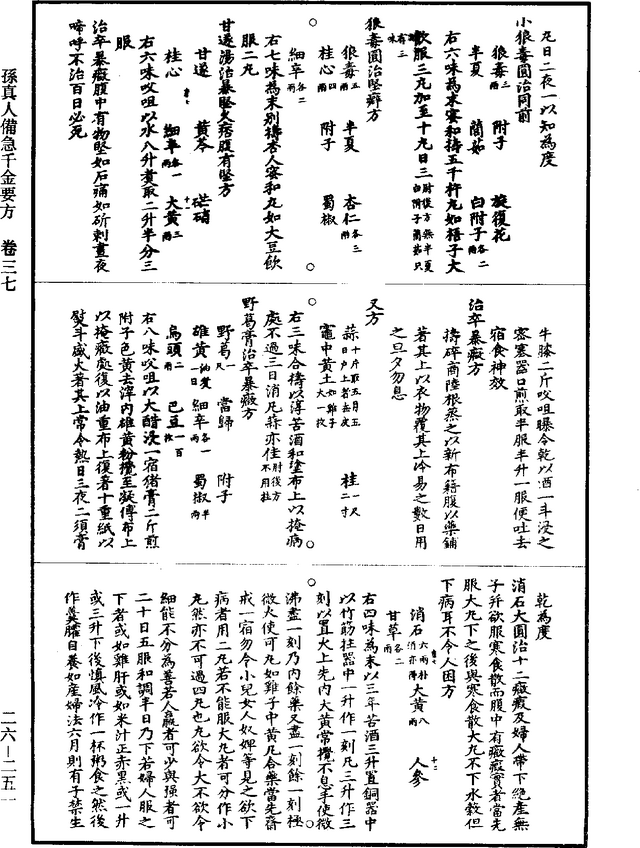 孫真人備急千金要方　卷三七
二六—二五一
九日二夜一以知為度
小狼毒圓治同前
狼毒三兩　附子　旋復花
半夏　䕡茹　白附子各二兩
右六味為末蜜和擣五千杵丸如梧子大
飲服三丸加至十丸日三肘後方無半夏白附子䕡茹只有三味
狼毒圓治堅癖方
狼毒五兩　半夏　杏仁各三兩
桂心四兩　附子　蜀椒
細辛各二兩
右七味為末別擣杏人蜜和丸如大豆飲
服二丸
甘遂湯治暴堅久痞腹有堅方
甘遂　黃芩　芒硝
桂心　細辛各一兩　大黃三兩
右六味㕮咀以水八升煮取二升半分三
服
治卒暴癥腹中有物堅如石痛如斫刺晝夜
啼呼不治百日必死
牛膝二斤㕮咀曝令乾以酒一斗浸之
密塞器口煎取半服半升一服便吐去
宿食神效
治卒暴癥方
擣碎商陸根蒸之以新布藉腹以藥鋪
著其上以衣物覆其上冷易之數日用
之旦夕勿息
又方
蒜十斤取五月五日戶上者去皮　桂一尺二寸
竈中黃土如雞子大一枚
右三味合擣以淳苦酒和塗布上以掩病
處不過三日消凡蒜亦佳肘後方不用桂
野葛膏治卒暴癥方
野葛一尺　當歸　附子
雄黃油煮一日　細辛各一兩　蜀椒半兩
烏頭二兩　巴豆一百枚
右八味㕮咀以大醋浸一宿猪膏二斤煎
附子色黃去滓內雄黃粉攪至凝傅布上
以掩癥處復以油重布上復著十重紙以
熨斗盛火著其上常令熱日三夜二須膏
乾為度
消石大圓治十二癥瘕及婦人帶下絕產無
子并欲服寒食散而腹中有癥瘕實者當先
服大丸下之後與寒食散大丸不下水穀但
下病耳不令人困方
消石六兩朴消亦得　大黃八兩　人參
甘草各二兩
右四味為末以三年苦酒三升置銅器中
以竹筯拄器中一升作一刻凡三升作三
刻以置火上先內大黃常攪不息手使微
沸盡一刻乃內餘藥又盡一刻餘一刻極
微火使可丸如雞子中黃凡合藥當先齋
戒一宿勿令小兒女人奴婢等見之欲下
病者用二丸若不能服大丸者可分作小
丸然亦不可過四丸也丸欲令大不欲令
細能不分為善若人羸者可少與強者可
二十日五服和調半日乃下若婦人服之
下者或如雞肝或如米汁正赤黑或一升
或三升下後慎風冷作一杯粥食之然後
作羹臛自養如産婦法六月則有子禁生